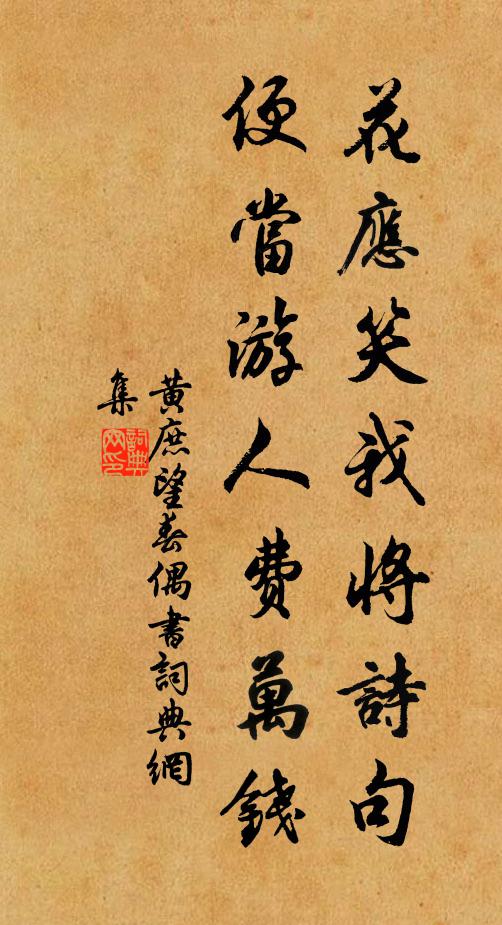 花應笑我將詩句
便當游人費萬錢
黃庶望春偶書詞典網
集
詞典
网印